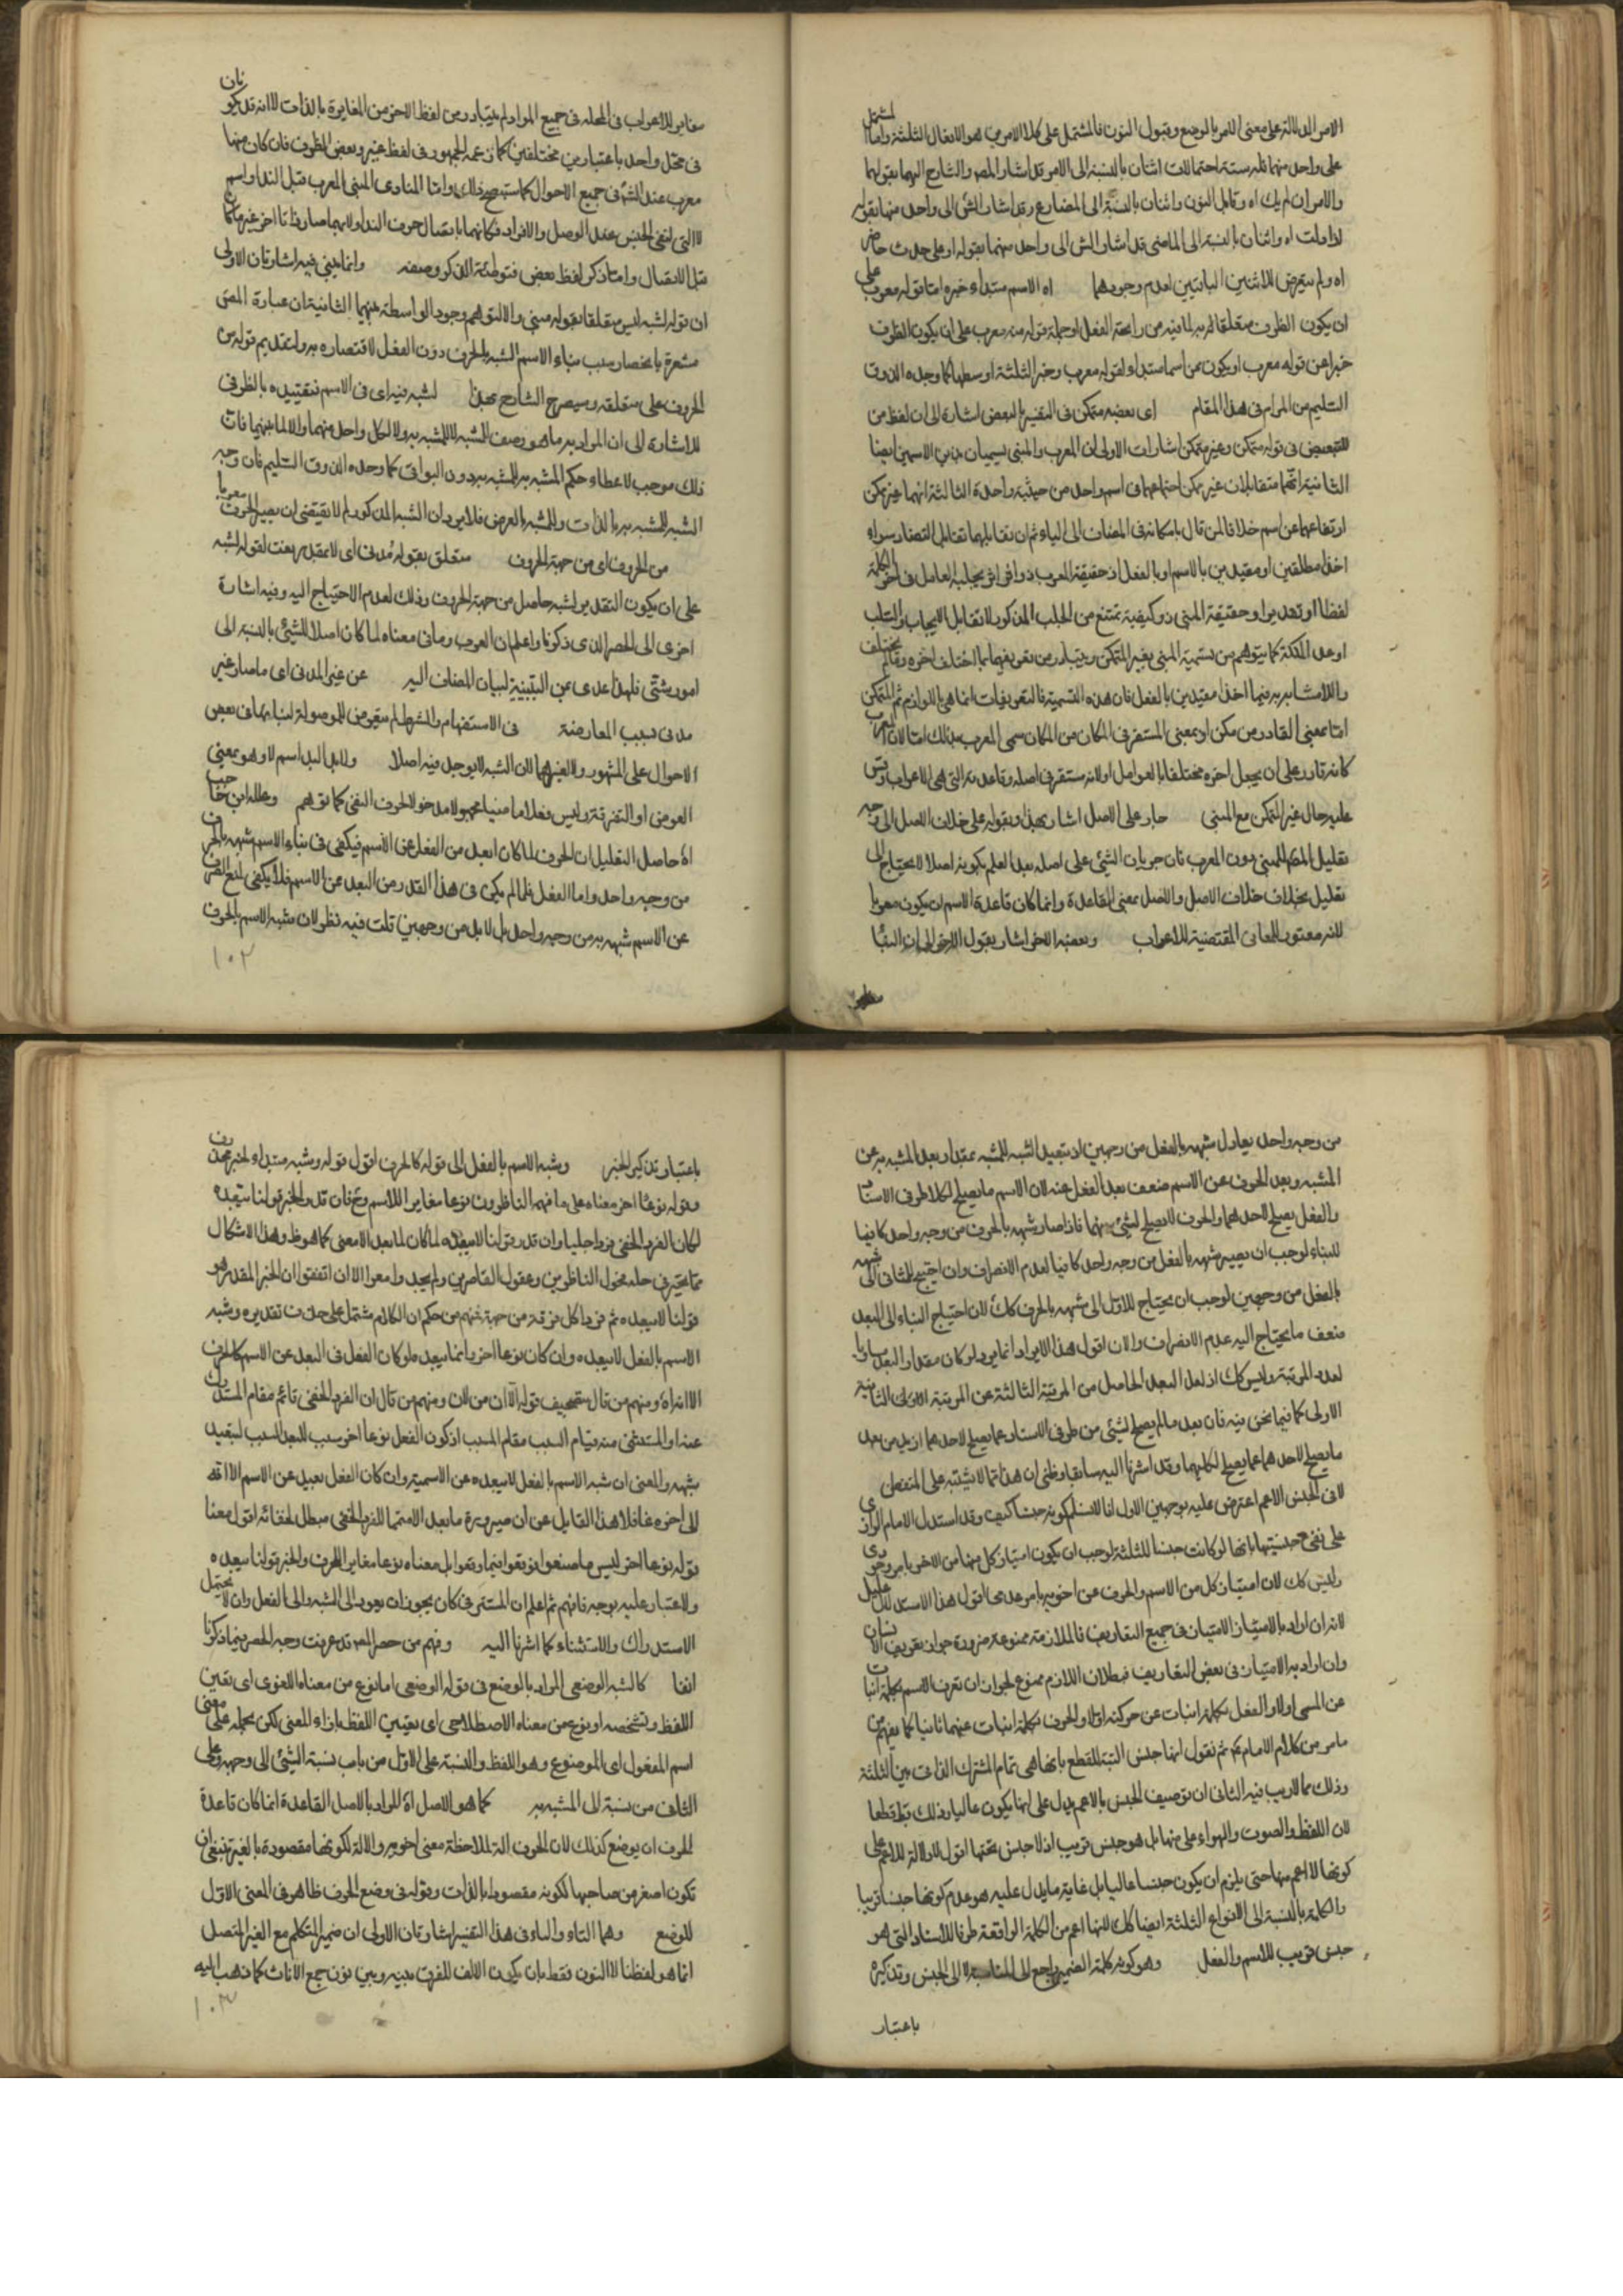 الامر الدلالة على معنى الامر بالوضع وقبول النون فالمشتمل على كلا الامرين هو الافعال الثلثة واما المشتمل
على واحد منهما فله ستة احتمالات اثنان بالنسبة الى الامر قد اشار المص والشارح اليهما بقولهما
والامر ان لم يك اه وقابل النون واثنان بالنسبة الى المضارع وقد اشار الش الى واحد منها بقوله
اه ولم يتعرض للاثنين الباقيين لعدم وجودهما اه الاسم مبتداء خبره اما قوله معرب على
ان يكون الظرف متعلقا له به لما فيه من رايحة الفعل او جملة قوله منه معرب على ان يكون الظرف
خبرا عن قوله معرب او يكون من اسما مبتداء لقوله معرب وخير الثلثة اوسطها كما وجده الذوق
السليم من المرام فى هذا المقام اى بعضه متمكن فى التفسير بالبعض اشارة الى ان لفظ من
للتبعيض فى قوله متمكن وغير متمكن اشارات الاولى ان المعرب والمبنى يسميان بهذين الاسمين ايضا
الثانية انهما متقابلان غير ممكن اجتماعهما فى اسم واحد من حيثية واحدة الثالثة انهما غير ممكن
ارتفاعهما عن اسم خلافا لمن قال بامكانه فى المضاف الى الياء ثم ان تقابلهما تقابل التضاد سواء
اخذا مطلقين او مقيدين بالاسم او بالفعل اذ حقيقة المعرب ذو اثر يجلبه العامل فى اخر الكلمة
لفظا او تقديرا وحقيقة المبنى ذو كيفية تمتنع من الجلب المذكور لا تقابل الايجاب والسلب
او عدم الملكة كما يتوهم من تسمية المبنى بغير المتمكن ويتبادر من تعريفهما بما اختلف اخره وما لم يختلف
اما بمعنى القادر من مكن او بمعنى المستقر فى المكان من المكان سمى المعرب بذلك اما لان المعرب
كانه قادر على ان يجعل اخره مختلفا بالعوامل او لانه مستقر فى اصله وقاعدته التى هى الاعراب وقس
عليه حال غير المتمكن مع المبنى جار على الاصل اشار بهذا وبقوله على خلاف الاصل الى وجه
تعليل المص للمبنى دون المعرب فان جريان الشيئ على اصله بعد العلم بكونه اصلا لا يحتاج الى
تعليل بخلاف خلاف الاصل والاصل بمعنى القاعدة وانما كان قاعدة الاسم ان يكون معربا
لانه معتور للمعانى المقتضية للاعراب وبعضه الاخر اشار بقول الاخر الى ان البناء
مغاير للاعراب فى المحلة فى جميع المواد لم يتبادر من لفظ الاخر من المغايرة بالذات لا انه قد يكونان
فى محل واحد باعتبارين مختلفين كما زعمه الجمهور فى لفظ غير وبعض الظروف فان كان منها
معرب عند الش فى جميع الاحوال كما ستصح ذلك واما المنادى المبنى المعرب قبل النداء واسم
لا التى لنفى الجنس عند الوصل والافراد فكانهما باتصال حرف النداء ولا بهما صارا ذاتا اخر غير ما كانا
قبل الاتصال واما ذكر لفظ بعض فتوطئة لذكر وصفه وانما لمبنى فيه اشارتان الاولى
ان قوله لشبه ليس متعلقا بقوله مبنى والا لتوهم وجود الواسطة بينهما الثانية ان عبارة المص
مشعرة بانحصار سبب بناء الاسم الشبه بالحرف دون الفعل لاقتصاره به ولتقديم قوله من
الحروف على متعلقه وسيصرح الشارح بهذا لشبه فيه اى فى الاسم فتقييده بالظرفى
للاشارة الى ان المراد به ما هو وصف للشبه لا للمشبه به ولا لكل واحد منهما
ذلك موجب لاعطاء حكم المشبه به للمشبه دون البواقى كما وحده الذوق السليم فان وجه
الشبه للمشبه به بالذات وللمشبه بالعرض فلا يرد ان الشبه المذكور لم لا يقتضى ان يصير الحرف معربا
من الحروف اى من جهة الحروف متعلق بقوله مدنى اى لا بمقدر نعت لقوله لشبه
على ان يكون التقدير لشبه حاصل من جهة الحروف وذلك لعدم الاحتياج اليه وفيه اشارة
اخرى الى الحصر الذى ذكرنا واعلم ان المعرب ومافى معناه لما كان اصلا للشيئ بالنسبة الى
امور شتى فلهذا عدى بمن التبيينية لبيان المضاف اليه عن غير المدنى اى ما صار غير
مدنى بسبب المعارضة فى الاستفهام والشرط لم يتعرض للموصولة لبنائها فى بعض
الاحوال على المشهور ولا لغيرهما لان الشبه لا يوجد فيه اصلا ولا بل البل اسم لا وهو بمعنى
العوض او التفرقة وليس فعلا ماضيا مجهولا مدخولا لحرف النفى كما توهم وعلله ابن حاجب
اه حاصل التعليل ان الحرف لما كان ابعد من الفعل عن الاسم فيكفى فى بناء الاسم شبهه بالحرف
من وجه واحد واما الفعل فلما لم يكن فى هذا القدر من البعد عن الاسم فلا يكفى لمنع الصرف
عن الاسم شبهه به من وجه واحد بل لا بد من وجهين قلت فيه نظر لان شبه الاسم بالحرف
١٠٢
من وجه واحد يعادل شبهه بالفعل من وجهين اذ تبعيد الشبه للمشبه بمقدار بعد المشبه به عن
المشبه وبعد الحرف عن الاسم ضعف بعد الفعل عنه لان الاسم ما يصلح لكلا طرفى الاسناد
والفعل يصلح لاحدهما والحرف لا يصلح لشيئ منهما فاذا صار شبهه بالحرف من وجه واحد كافيا
للبناء لوجب ان يصير شبهه بالفعل من وجه واحد كافيا لعدم الانصراف وان احتيج للثانى الى شبهه
بالفعل من وجهين لوجب ان يحتاج للاول الى شبهه بالحرف كك لان احتياج البناء الى البعد
ضعف ما يحتاج اليه عدم الانصراف والان اقول هذا الايراد انما يرد لو كان مقدار البعد مساويا
لعدد المرتبة وليس كك اذ لعل البعد الحاصل من المرتبة الثالثة عن المرتبة الاولى الثانية
الاولى كما فيما نحن فيه فان بعد ما لم يصلح لشيئ من طرفى الاسناد عما يصلح لاحدهما ازيد من بعد
ما يصلح لاحدهما عما يصلح لكليهما وقد اشرنا اليه سابقا وظنى ان هذا مما لا يشتبه على المتفطن
لافى الجنس الاعم اعترض عليه بوجهين الاول انا لا نسلم كونه جنسا كيف وقد استدل الامام الرازى
على نفى جنسيتها بانها لو كانت جنسا للثلثة لوجب ان يكون امتياز كل منها من الاخر بامر وجودى
وليس كك لان امتياز كل من الاسم والحرف عن اخويه بامر عدمى اقول هذا الاستدلال عليل
لانه ان اراد بالامتياز الامتياز فى جميع التعاريف فالملازمة ممنوعة ضرورة جواز تعريف الانسان
وان اراد به الامتياز فى بعض التعاريف فبطلان اللازم ممنوع لجواز ان تعرف الاسم بكلمة انبات
عن المسمى اولا والفعل بكلمة انبات عن حركته اولا والحرف بكلمة انبات عنهما ثانيا كما يفهم من
مامر من كلام الامام ثم نقول انها جنس البتة للقطع بانها هى تمام المشترك الذاتى بين الثلثة
وذلك مما لا ريب فيه الثانى ان توصيف الجنس بالاعم يدل على انها يكون عاليا وذلك بط قطعا
لان اللفظ والصوت والهواء اعلى منها بل هو جنس قريب اذ لا جنس تحتها اقول لا دلالة للاعم على
كونها لا اعم منها حتى يلزم ان يكون جنسا عاليا بل غاية ما يدل عليه هو عدم كونها جنسا قريبا
والكلمة بالنسبة الى الانواع الثلثة ايضا كك لانها اعم من الكلمة الواقعة طرفا للاسناد التى هو
جنس قريب للاسم والفعل وهو كونه كلمة الضمير راجع الى المناسبة لا الى الجنس وتذكيره
باعتبار
باعتبار تذكير الخبر وشبه الاسم بالفعل الى قوله كالحرف اقول قوله وشبه مبتداء لخبر محذوف
وقوله نوعا اخر معناه على ما فهم الناظرون نوعا مغايرا للاسم وح فان قدر الخبر قولنا يبعده
لكان الفرد الخفى فردا جليا وان قدر قولنا لا يبعده لما كان لما بعد الا معنى كما هو ظ وهذا الاشكال
مما تحير فى حله فحول الناظرين وعقول القاصرين ولم يجد وامعوا الا ان اتفقوا ان الخبر المقدر هو
قولنا لا يبعده ثم فر كل فرقة من جهة فمنهم من حكم ان الكلام مشتمل على حذف تقديره وشبه
الاسم بالفعل لا يبعده وان كان نوعا اخر وانما يبعد لو كان الفعل فى البعد عن الاسم كالحرف
الا انه اه ومنهم من قال بتصحيف قوله الا ان من لان ومنهم من قال ان الفرد الخفى قائم مقام المستدرك
عنه او المستثنى منه قيام السبب مقام المسبب اذ كون الفعل نوعا اخر سبب للبعد السبب لتبعيد
شبهه والمعنى ان شبه الاسم بالفعل لا يبعده عن الاسمية وان كان الفعل بعيد عن الاسم الا انه
الى اخره غافلا هذا القايل عن ان صيرورة ما بعد الا متمما للفرد الخفى مبطل لخفائه اقول معنا
قوله نوعا اخر ليس ما صنعوا نوعا معناه نوعا مغايرا للحرف والخبر قولنا يبعده
ولا غبار عليه بوجه فافهم ثم اعلم ان المستتر فى كان يجوز ان يعود الى الشبه والى الفعل وان لا يحتمل
الاستدراك والاستثناء كما اشرنا اليه وفهم من حصر المص قد عرفت وجه الحصر فيما ذكرنا
انفا كالشبه الوضعى المراد بالوضع فى قوله الوضعى اما نوع من معناه اللغوى اى تعيين
اللفظ وتشخصه او نوع من معناه الاصطلاحى اى تعيين اللفظ بازاء المعنى لكن بحمله على معنى
اسم المفعول اى الموضوع وهو اللفظ والنسبة على الاول من باب نسبة الشيئ الى وجهه وعلى
الثانى من نسبة الى المشبه به كما هو الاصل اه المراد بالاصل القاعدة انما كان قاعدة
الحرف ان يوضع كذلك لان الحرف الة لملاحظة معنى اخويه والالة لكونها مقصودة بالغير تنبغى ان
تكون اصغر من صاحبها لكونه مقصودا بالذات وقوله فى وضع الحرف ظاهر فى المعنى الاول
للوضع وهما التاء والباء فى هذا التفسير اشارتان الاولى ان ضمير المتكلم مع الغير المتصل
انما هو لفظنا لا النون فقط بان يكون الالف للفرق بينه وبين نون جمع الاناث كما ذهب اليه
١٠٣